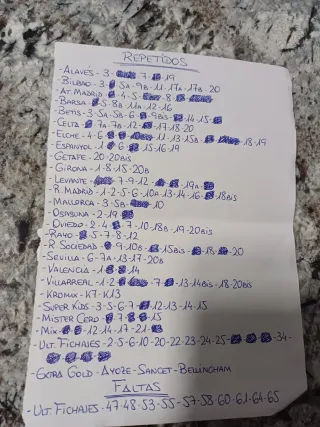 REPETIDOS
- ALAVÉS - 3 - 7 - 19
- BILBAO - 3 - 5A - 9B - 11 - 17A - 17B - 20
- AT. MADRID - 4 - 5 - 8
- BARSA - 5 - 8B - 11A - 12 - 16
- BETIS - 3 - 5A - 5B - 6 - 9BIS - 14 - 15
- CELTA - 7A - 7B - 12 - 17 - 18 - 20
- ELCHE - 4 - 6 - 11 - 13 - 15B - 18 - 19
- ESPANYOL - 1 - 6 - 15 - 16 - 19
- GETAFE - 20 - 20BIS
- GIRONA - 1 - 8 - 15 - 20B
- LEVANTE - 7 - 9 - 12 - 19A
- R. MADRID - 1 - 2 - 5 - 6 - 10A - 13 - 14 - 16 - 18BIS
- MALLORCA - 3 - 5B - 10
- OSASUNA - 2 - 19
- OVIEDO - 2 - 4 - 7 - 10 - 18B - 19 - 20BIS
- RAYO - 5 - 7 - 8 - 12
- R. SOCIEDAD - 9 - 10B - 15BIS - 18 - 20
- SEVILLA - 6 - 7A - 13 - 17 - 20B
- VALENCIA - 1 - 14
- VILLARREAL - 1 - 2 - 7 - 13 - 14BIS - 18 - 20BIS
- KROMIX - K7 - K13
- SUPER KIDS - 3 - 5 - 6 - 7 - 12 - 13 - 14 - 15
- MISTER CERO - 7 - 8 - 15
- MIX - 12 - 14 - 17 - 21
- ULT. FICHAJES - 2 - 5 - 6 - 10 - 20 - 22 - 23 - 24 - 25 - 34 -
- EXTRA GOLD - AYOZE - SANCET - BELLINGHAM
FALTAS
- ULT. FICHAJES - 47 - 48 - 53 - 55 - 57 - 58 - 60 - 61 - 64 - 65